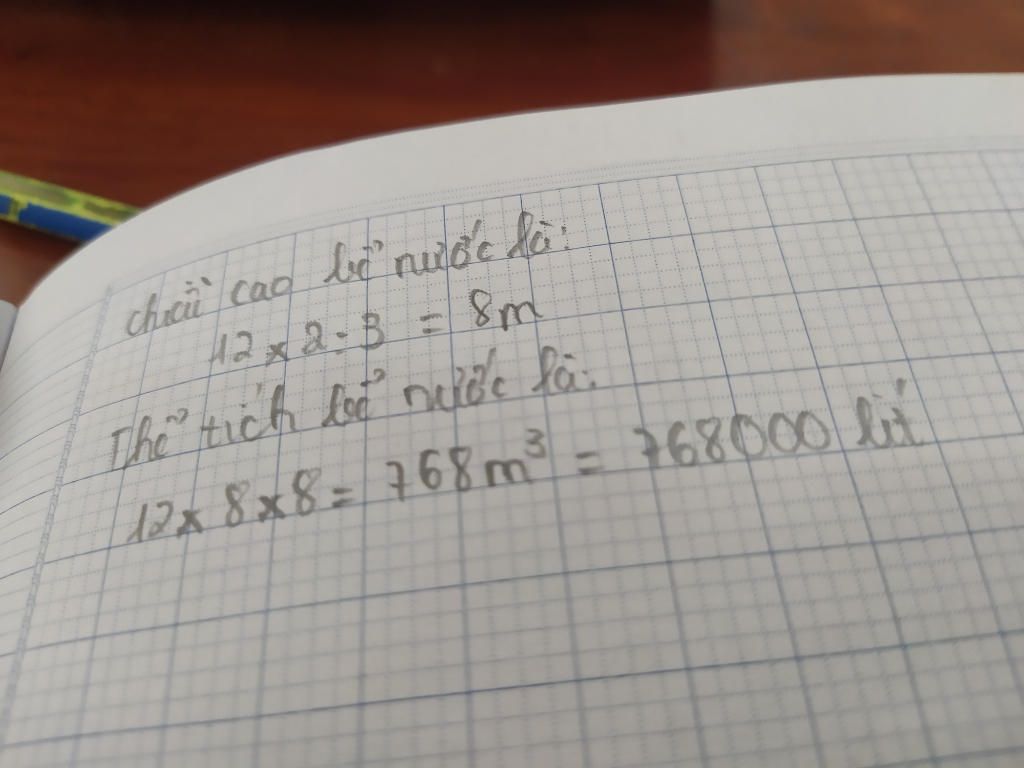 chiều cao bể nước là:
12 x 2 : 3 = 8m
Thể tích bể nước là:
12 x 8 x 8 = 768m³ = 768000 lít